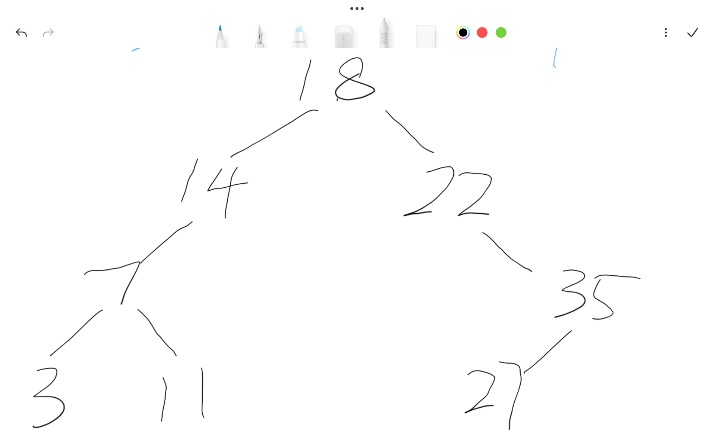 18
14 22
7 35
3 11 27